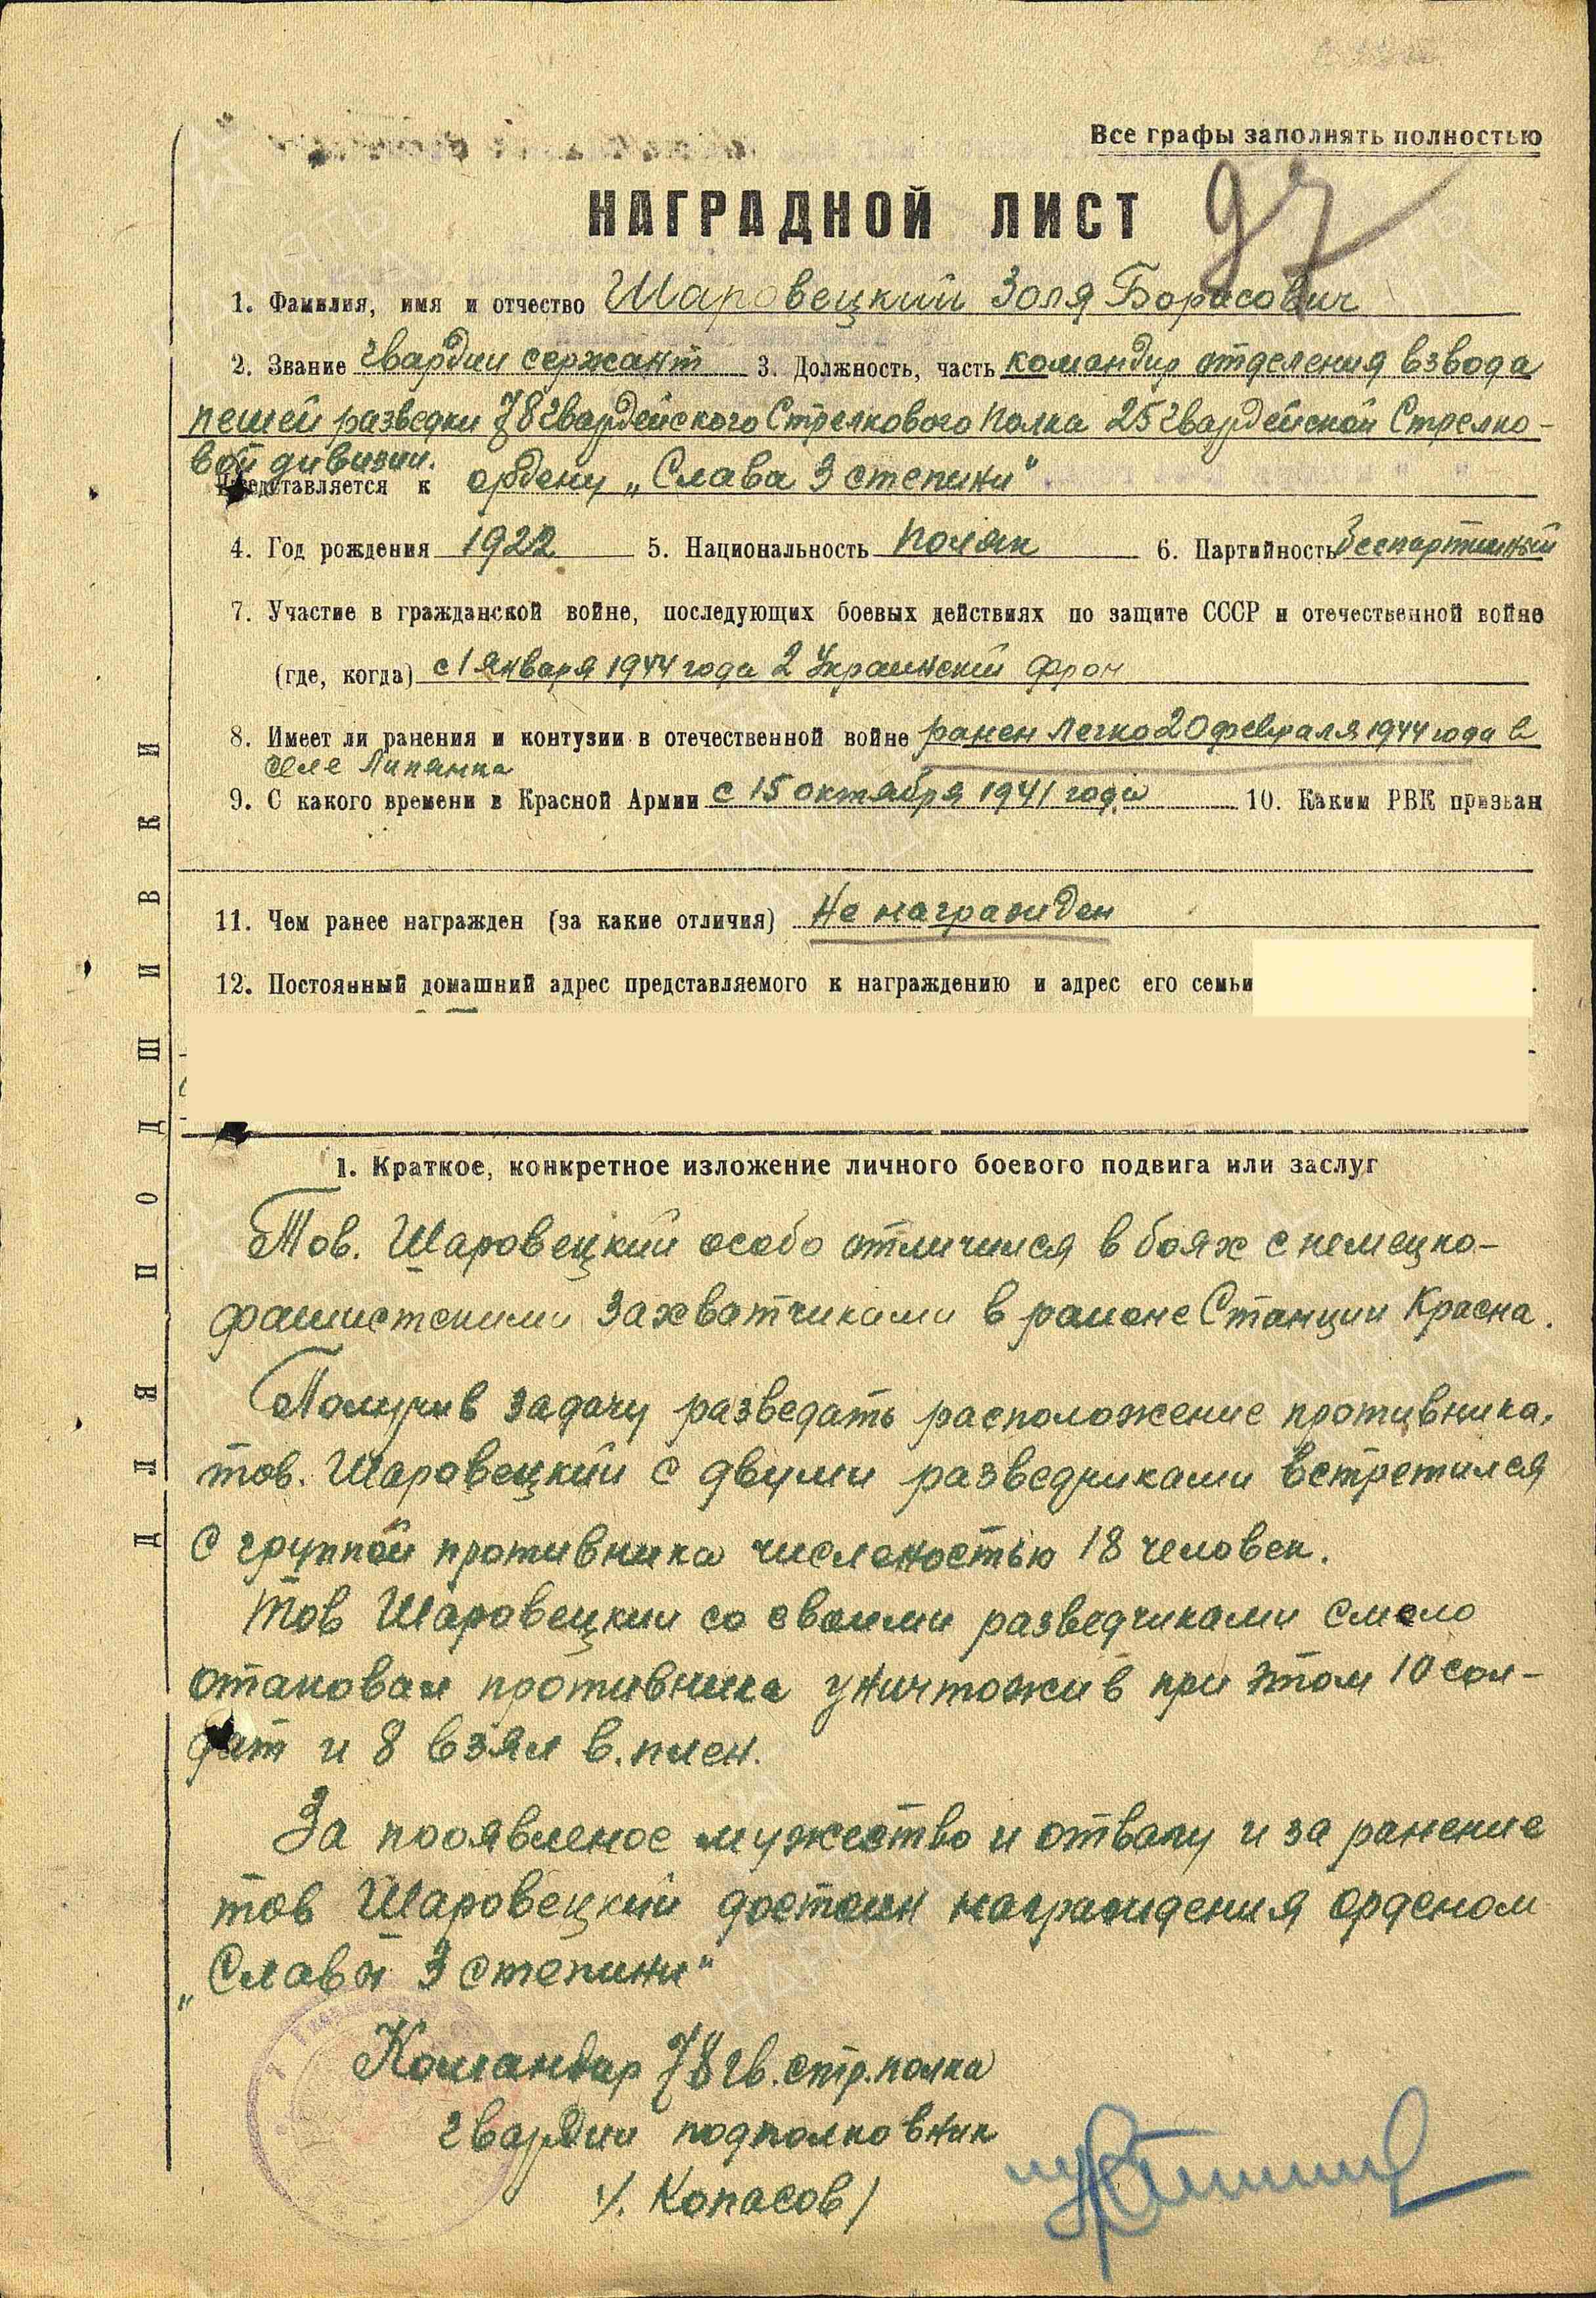 Все графы заполнять полностью
97
НАГРАДНОЙ ЛИСТ
1. Фамилия, имя и отчество Шаровецкий Золя Борисович
2. Звание гвардии сержант 3. Должность, часть командир отделения взвода
пешей разведки 78 Гвардейского Стрелкового Полка 25 Гвардейской Стрелко-
вой дивизии.
Представляется к ордену „Слава 3 степини"
4. Год рождения 1922 5. Национальность Поляк 6. Партийность Беспартийный
7. Участие в гражданской войне, последующих боевых действиях по защите СССР и отечественной войне
(где, когда) с 1 января 1944 года 2 Украинский фрон
8. Имеет ли ранения и контузии в отечественной войне ранен легко 20 февраля 1944 года в
селе Липянка
9. С какого времени в Красной Армии с 15 октября 1941 года 10. Каким РВК призван
11. Чем ранее награжден (за какие отличия) Не награжден
12. Постоянный домашний адрес представляемого к награждению и адрес его семьи
1. Краткое, конкретное изложение личного боевого подвига или заслуг
Тов. Шаровецкий особо отличился в боях с немецко-
фашистскими захватчиками в районе Станции Красна.
Получив задачу разведать расположение противника,
тов. Шаровецкий с двумя разведчиками встретился
с группой противника численостью 18 человек.
Тов Шаровецкий со своими разведчиками смело
отаковал противника уничтожив при этом 10 сол-
дат и 8 взял в плен.
За проявленое мужество и отвагу и за ранение
тов Шаровецкий достоин награждения орденом
„Славы 3 степини"
Командир 78 гв. стр. полка
гвардии подполковник
/. Копасов/
ДЛЯ ПОДШИВКИ